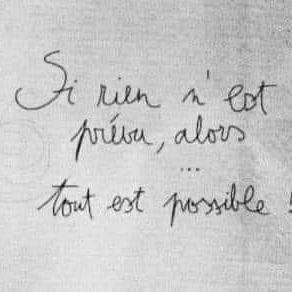 Si rien n'est
prévu, alors
...
tout est possible !